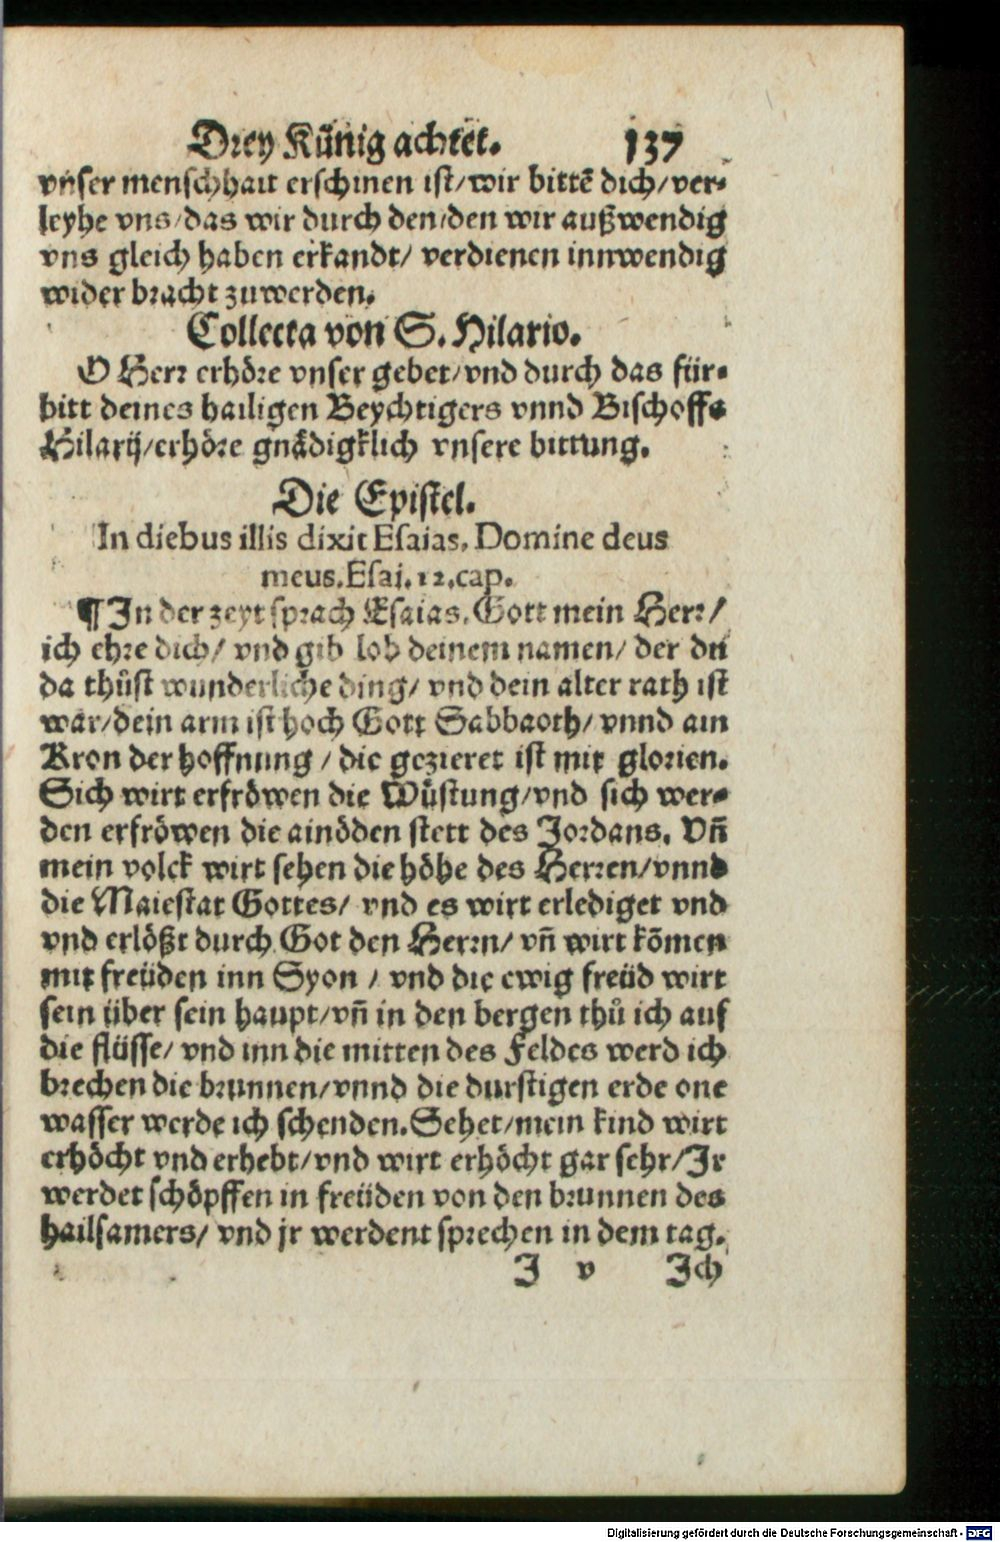 Drey Künig achtet. 137
vnser menschhait erschinen ist/wir bittē dich/ver-
leyhe vns/das wir durch den/den wir außwendig
vns gleich haben erkandt/ verdienen innwendig
wider bracht zuwerden.
Collecta von S. Hilario.
O Herr erhöre vnser gebet/vnd durch das für-
bitt deines hailigen Beychtigers vnnd Bischoffs
Hilarij/erhöre gnädigklich vnsere bittung.
Die Epistel.
In diebus illis dixit Esaias, Domine deus
meus. Esai. 12. cap.
¶ In der zeyt sprach Esaias. Gott mein Herr/
ich ehre dich/ vnd gib lob deinem namen/ der du
da thůst wunderliche ding/ vnd dein alter rath ist
war/dein arm ist hoch Gott Sabbaoth/ vnnd ain
Kron der hoffnung / die gezieret ist mit glorien.
Sich wirt erfröwen die Wůstung/vnd sich wer-
den erfröwen die ainöden stett des Jordans. Vñ
mein volck wirt sehen die höhe des Herren/vnnd
die Maiestat Gottes/ vnd es wirt erlediget vnd
vnd erlößt durch Got den Herrn/ vñ wirt kōmen
mit freüden inn Syon / vnd die ewig freüd wirt
sein über sein haupt/vñ in den bergen thů ich auf
die flüsse/ vnd inn die mitten des Feldes werd ich
brechen die brunnen/vnnd die durstigen erde one
wasser werde ich schenden. Sehet/mein kind wirt
erhöcht vnd erhebt/vnd wirt erhöcht gar sehr/Ir
werdet schöpffen in freüden von den brunnen des
hailsamers/ vnd jr werdent sprechen in dem tag.
I v Ich
Digitalisierung gefördert durch die Deutsche Forschungsgemeinschaft - DFG